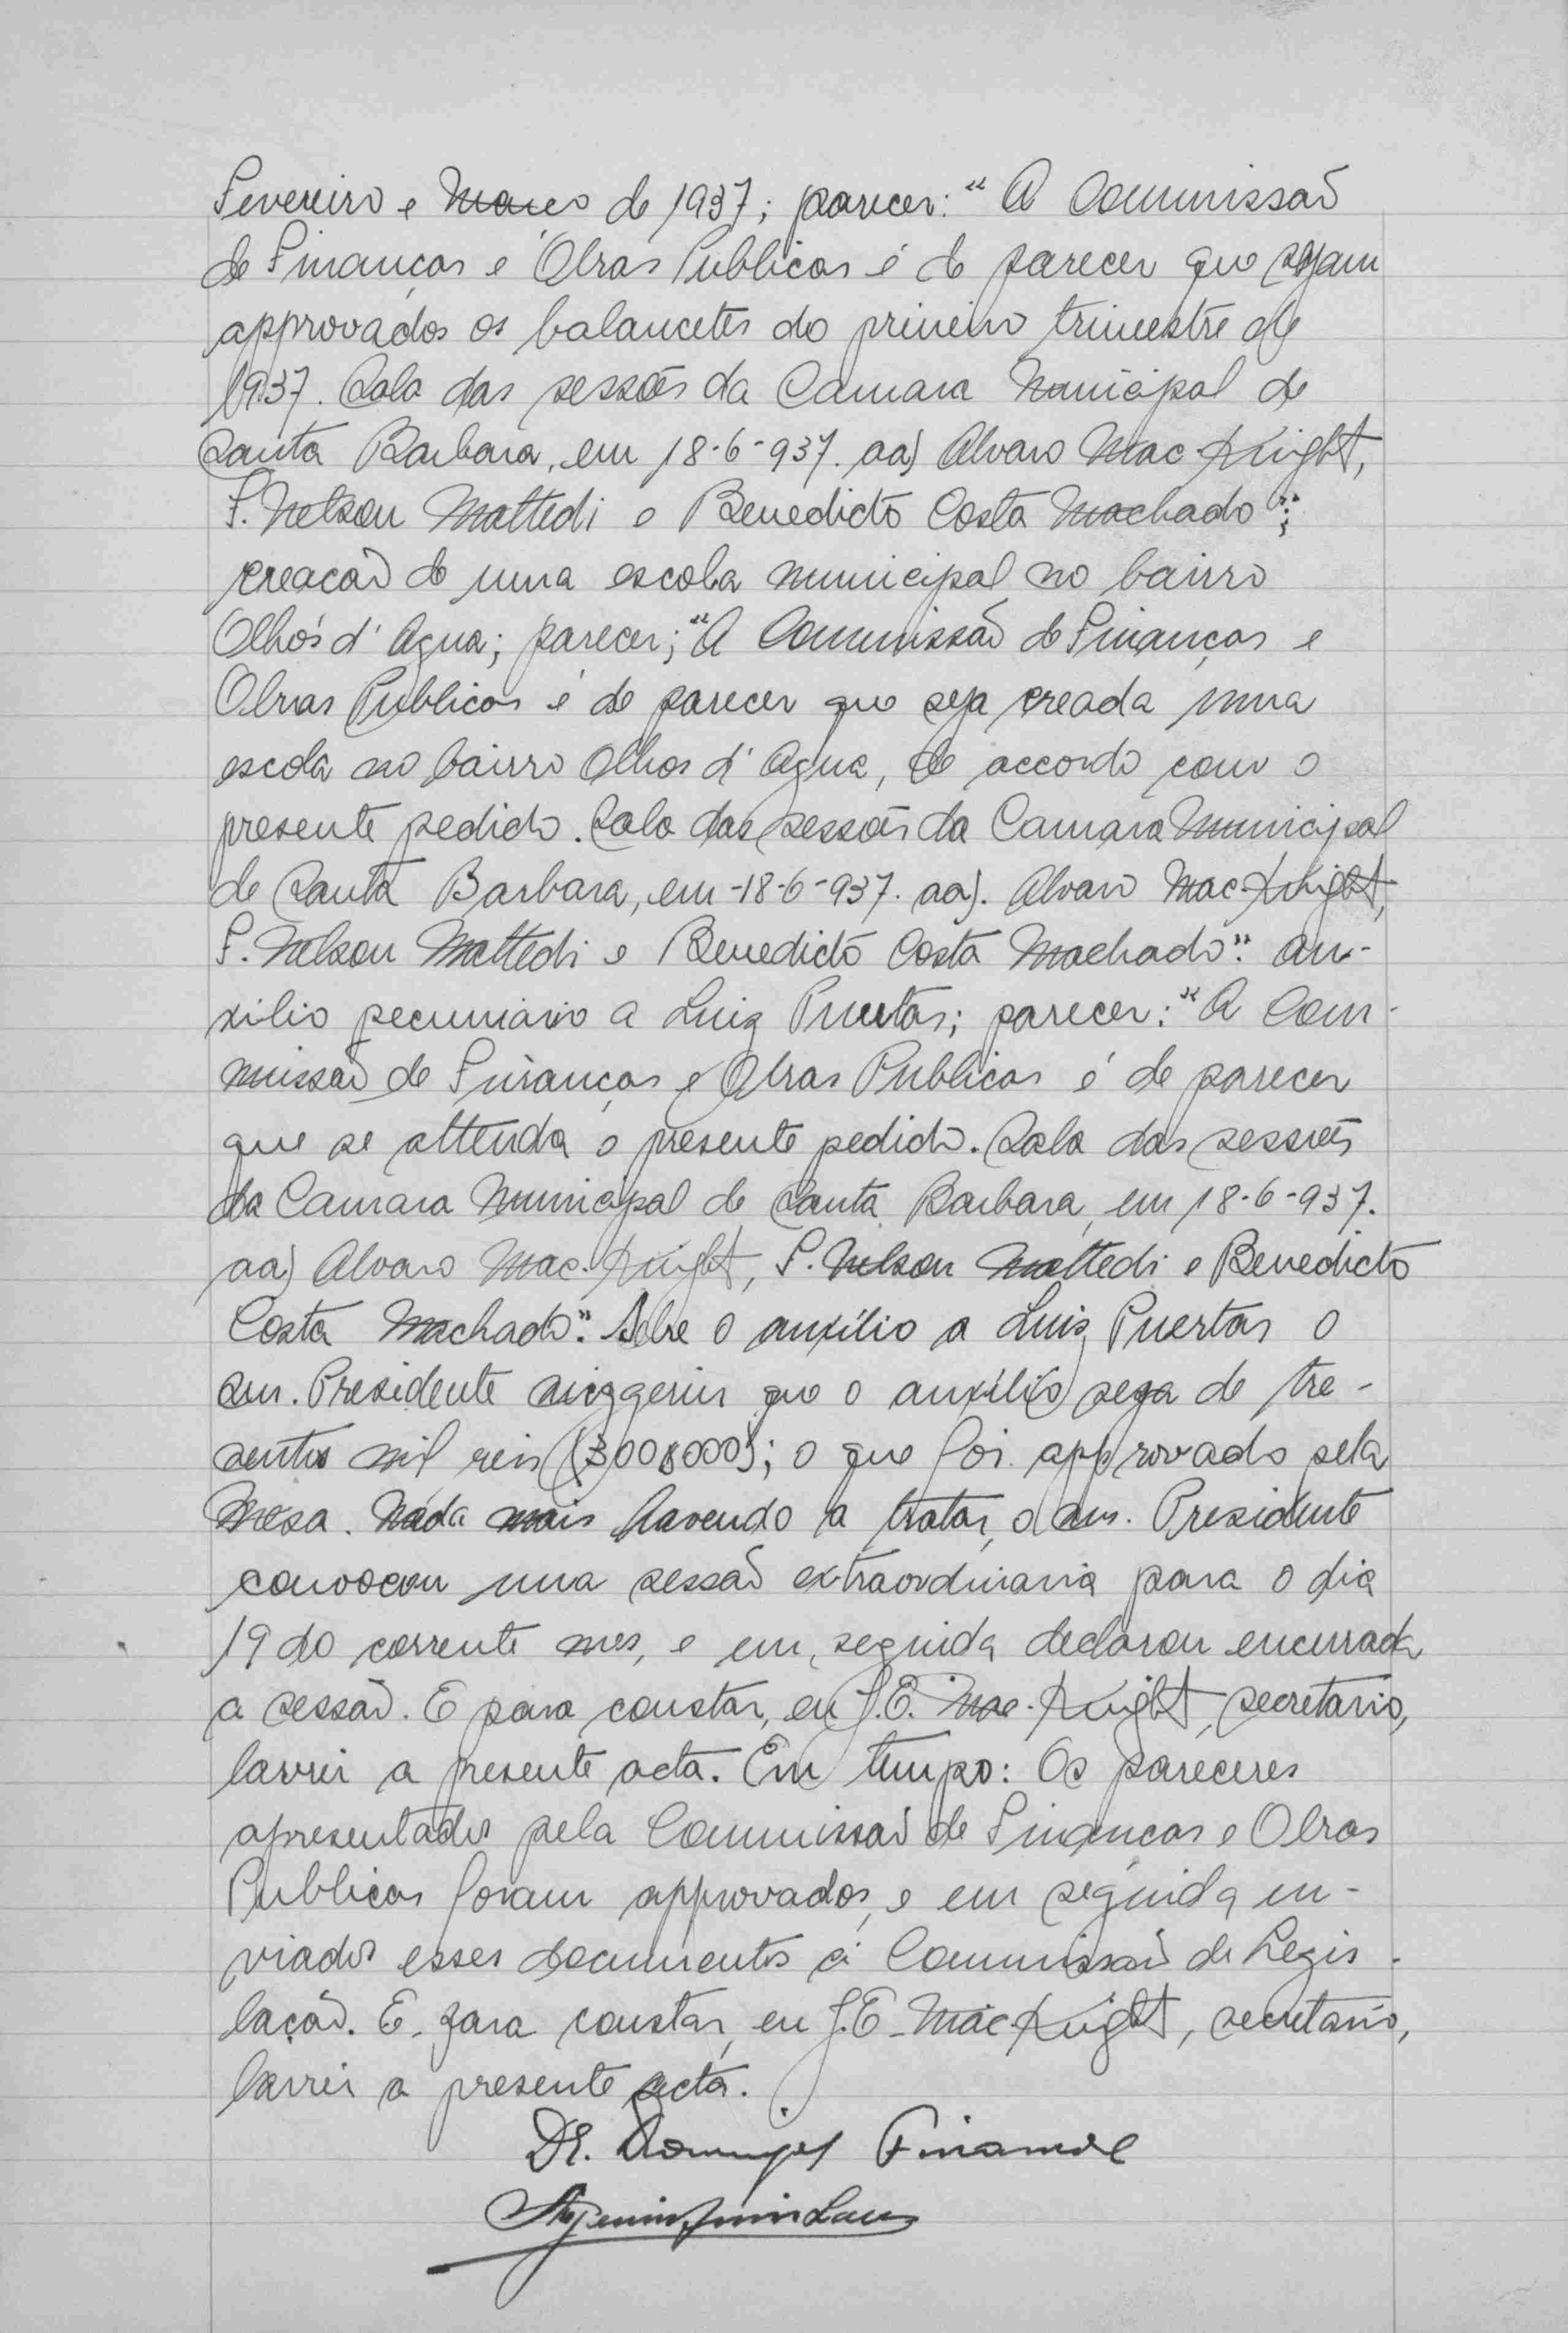 Fevereiro e Março de 1937; parecer: "A Commissão
de Finanças e Obras Publicas é de parecer que sejam
approvados os balancetes do primeiro trimestre de
1937. Sala das sessões da Camara Municipal de
Santa Barbara, em 18-6-937. aa) Alvaro Mac-Knight,
F. Nelson Mattedi e Benedicto Costa Machado";
creacão de uma escola municipal no bairro
Olhos d'Agua; parecer; "A Commissão de Finanças e
Obras Publicas é de parecer que seja creada uma
escola no bairro Olhos d'Agua, de accordo com o
presente pedido. Sala das sessões da Camara Municipal
de Santa Barbara, em -18-6-937. aa). Alvaro Mac-Knight,
F. Nelson Mattedi e Benedicto Costa Machado". au-
xilio pecuniario a Luiz Puertas; parecer: "A Com-
missão de Finanças e Obras Publicas é de parecer
que se attenda o presente pedido. Sala das sessões
da Camara Municipal de Santa Barbara, em 18-6-937.
aa) Alvaro Mac-Knight, F. Nelson Mattedi e Benedicto
Costa Machado". Sobre o auxilio a Luis Puertas o
snr. Presidente suggeriu que o auxilio seja de tre-
sentos mil reis (300$000); o que foi approvado pela
Mesa. Nada mais havendo a tratar, o snr. Presidente
convocou uma sessão extraordinaria para o dia
19 do corrente mes, e em seguida declarou encerrada
a sessão. E para constar, eu J.E. Mac-Knight, secretario,
lavrei a presente acta. Em tempo: Os pareceres
apresentados pela Commissão de Finanças e Obras
Publicas foram approvados, e em seguida en-
viados esses documentos á Commissão de Legis-
lação. E, para constar, eu J.E. Mac-Knight, secretario,
lavrei a presente acta.
Dr. Domingos Finamore